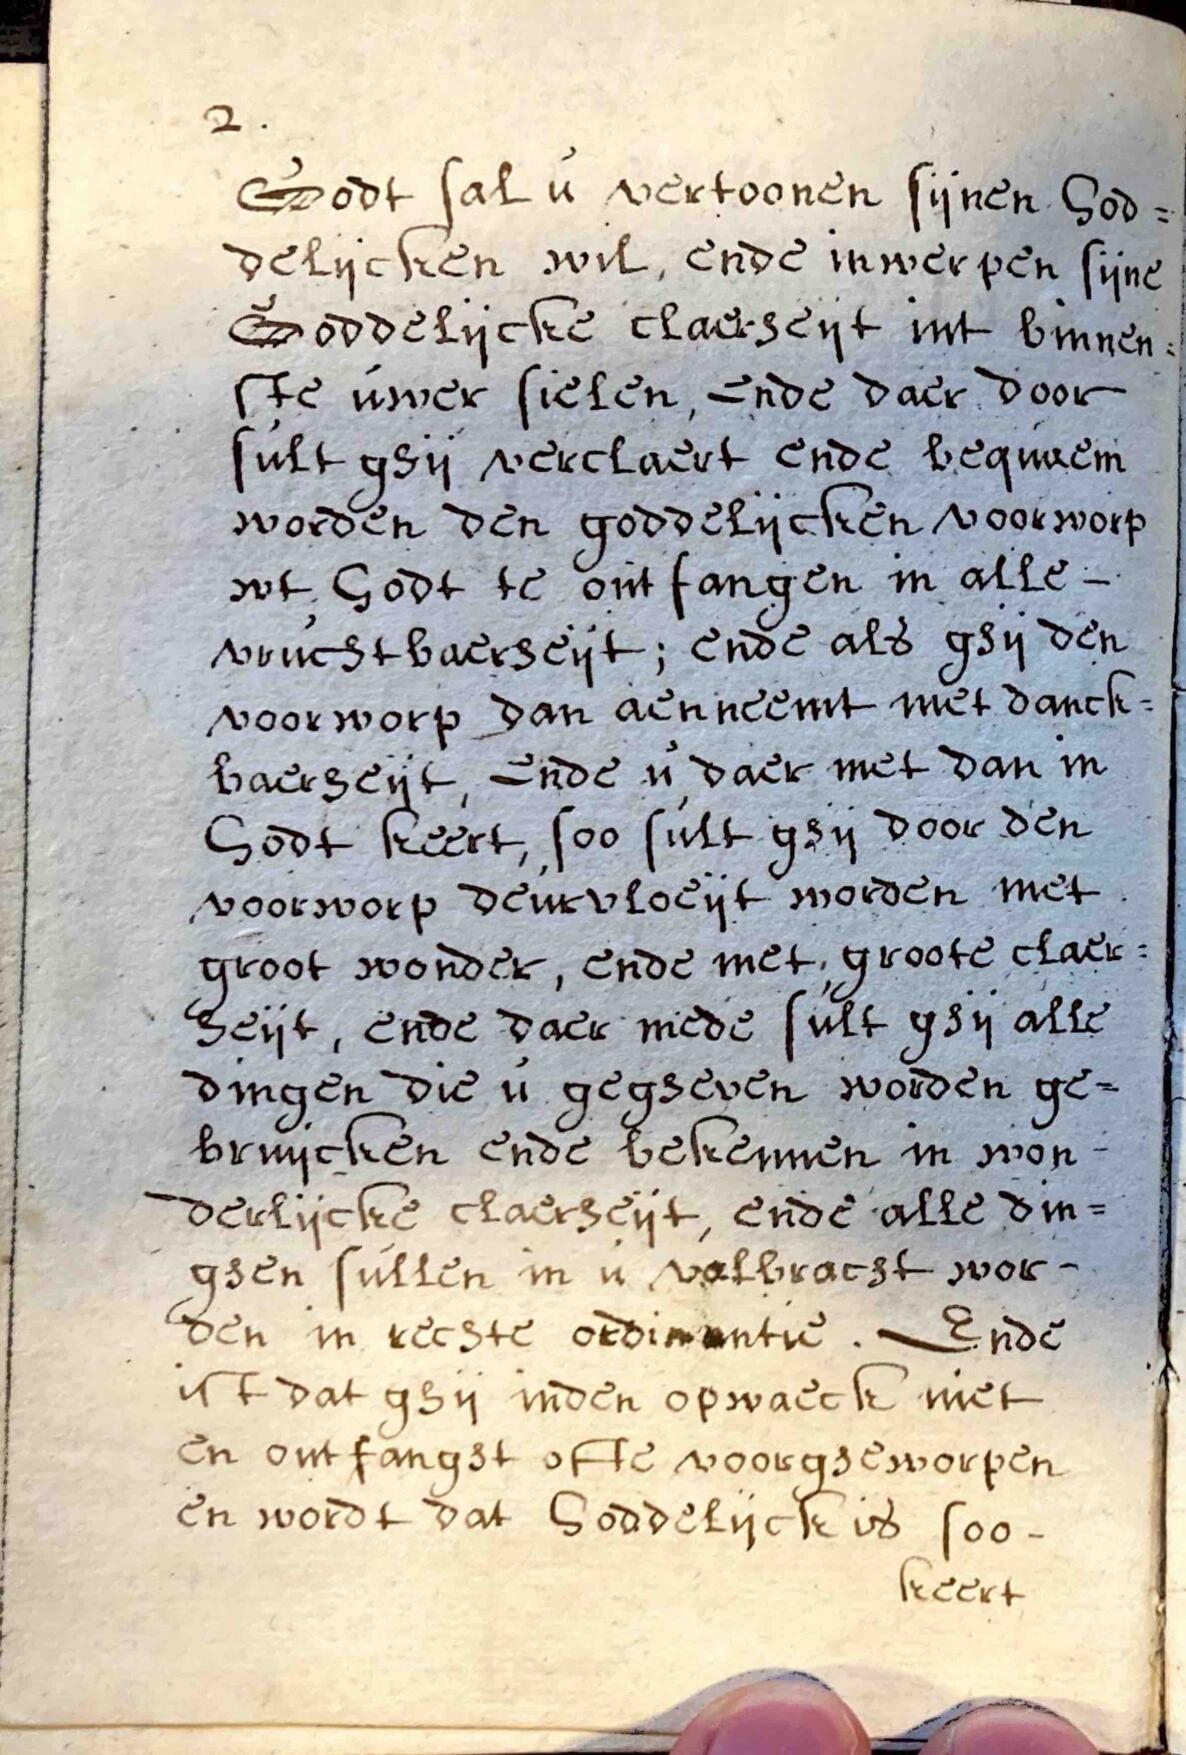 2.
Godt sal ú vertoonen sijnen God=
delijcken wil, ende inwerpen sijne
Goddelijcke claerheijt int binnen=
ste úwer sielen, Ende daer door
súlt ghij verclaert ende bequaem
worden den goddelijcken voorworp
wt Godt te ontfangen in alle-
vrúchtbaerheijt; ende als ghij den
voorworp dan aenneemt met danck=
baerheijt, Ende ú daer met dan in
Godt keert, soo súlt ghij door den
voorworp deúrvloeijt worden met
groot wonder, ende met groote claer=
heijt, ende daer mede súlt ghij alle
dingen die ú gegheven worden ge=
bruijcken ende bekennen in won-
derlijcke claerheijt, ende alle din=
ghen súllen in ú volbracht wor-
den in rechte ordinantie. Ende
ist dat ghij inden opwaeck niet
en ontfanght ofte voorgheworpen
en wordt dat Goddelijck is soo-
keert